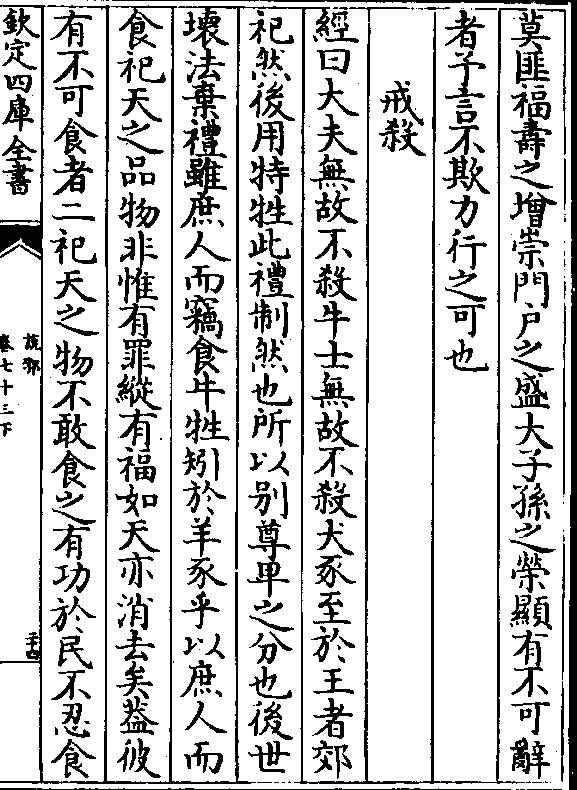 莫匪福壽之增崇門户之盛大子孫之榮顯有不可辭
者予言不欺力行之可也
戒殺
經曰大夫無故不殺牛士無故不殺犬豕至於王者郊
祀然後用特牲此禮制然也所以别尊卑之分也後世
壊法棄禮雖庶人而竊食牛牲矧於羊豕乎以庶人而
食祀天之品物非惟有罪縱有福如天亦消去矣葢彼
有不可食者二祀天之物不敢食之有功於民不忍食
欽定四庫全書
說郛
卷七十三下
二十四